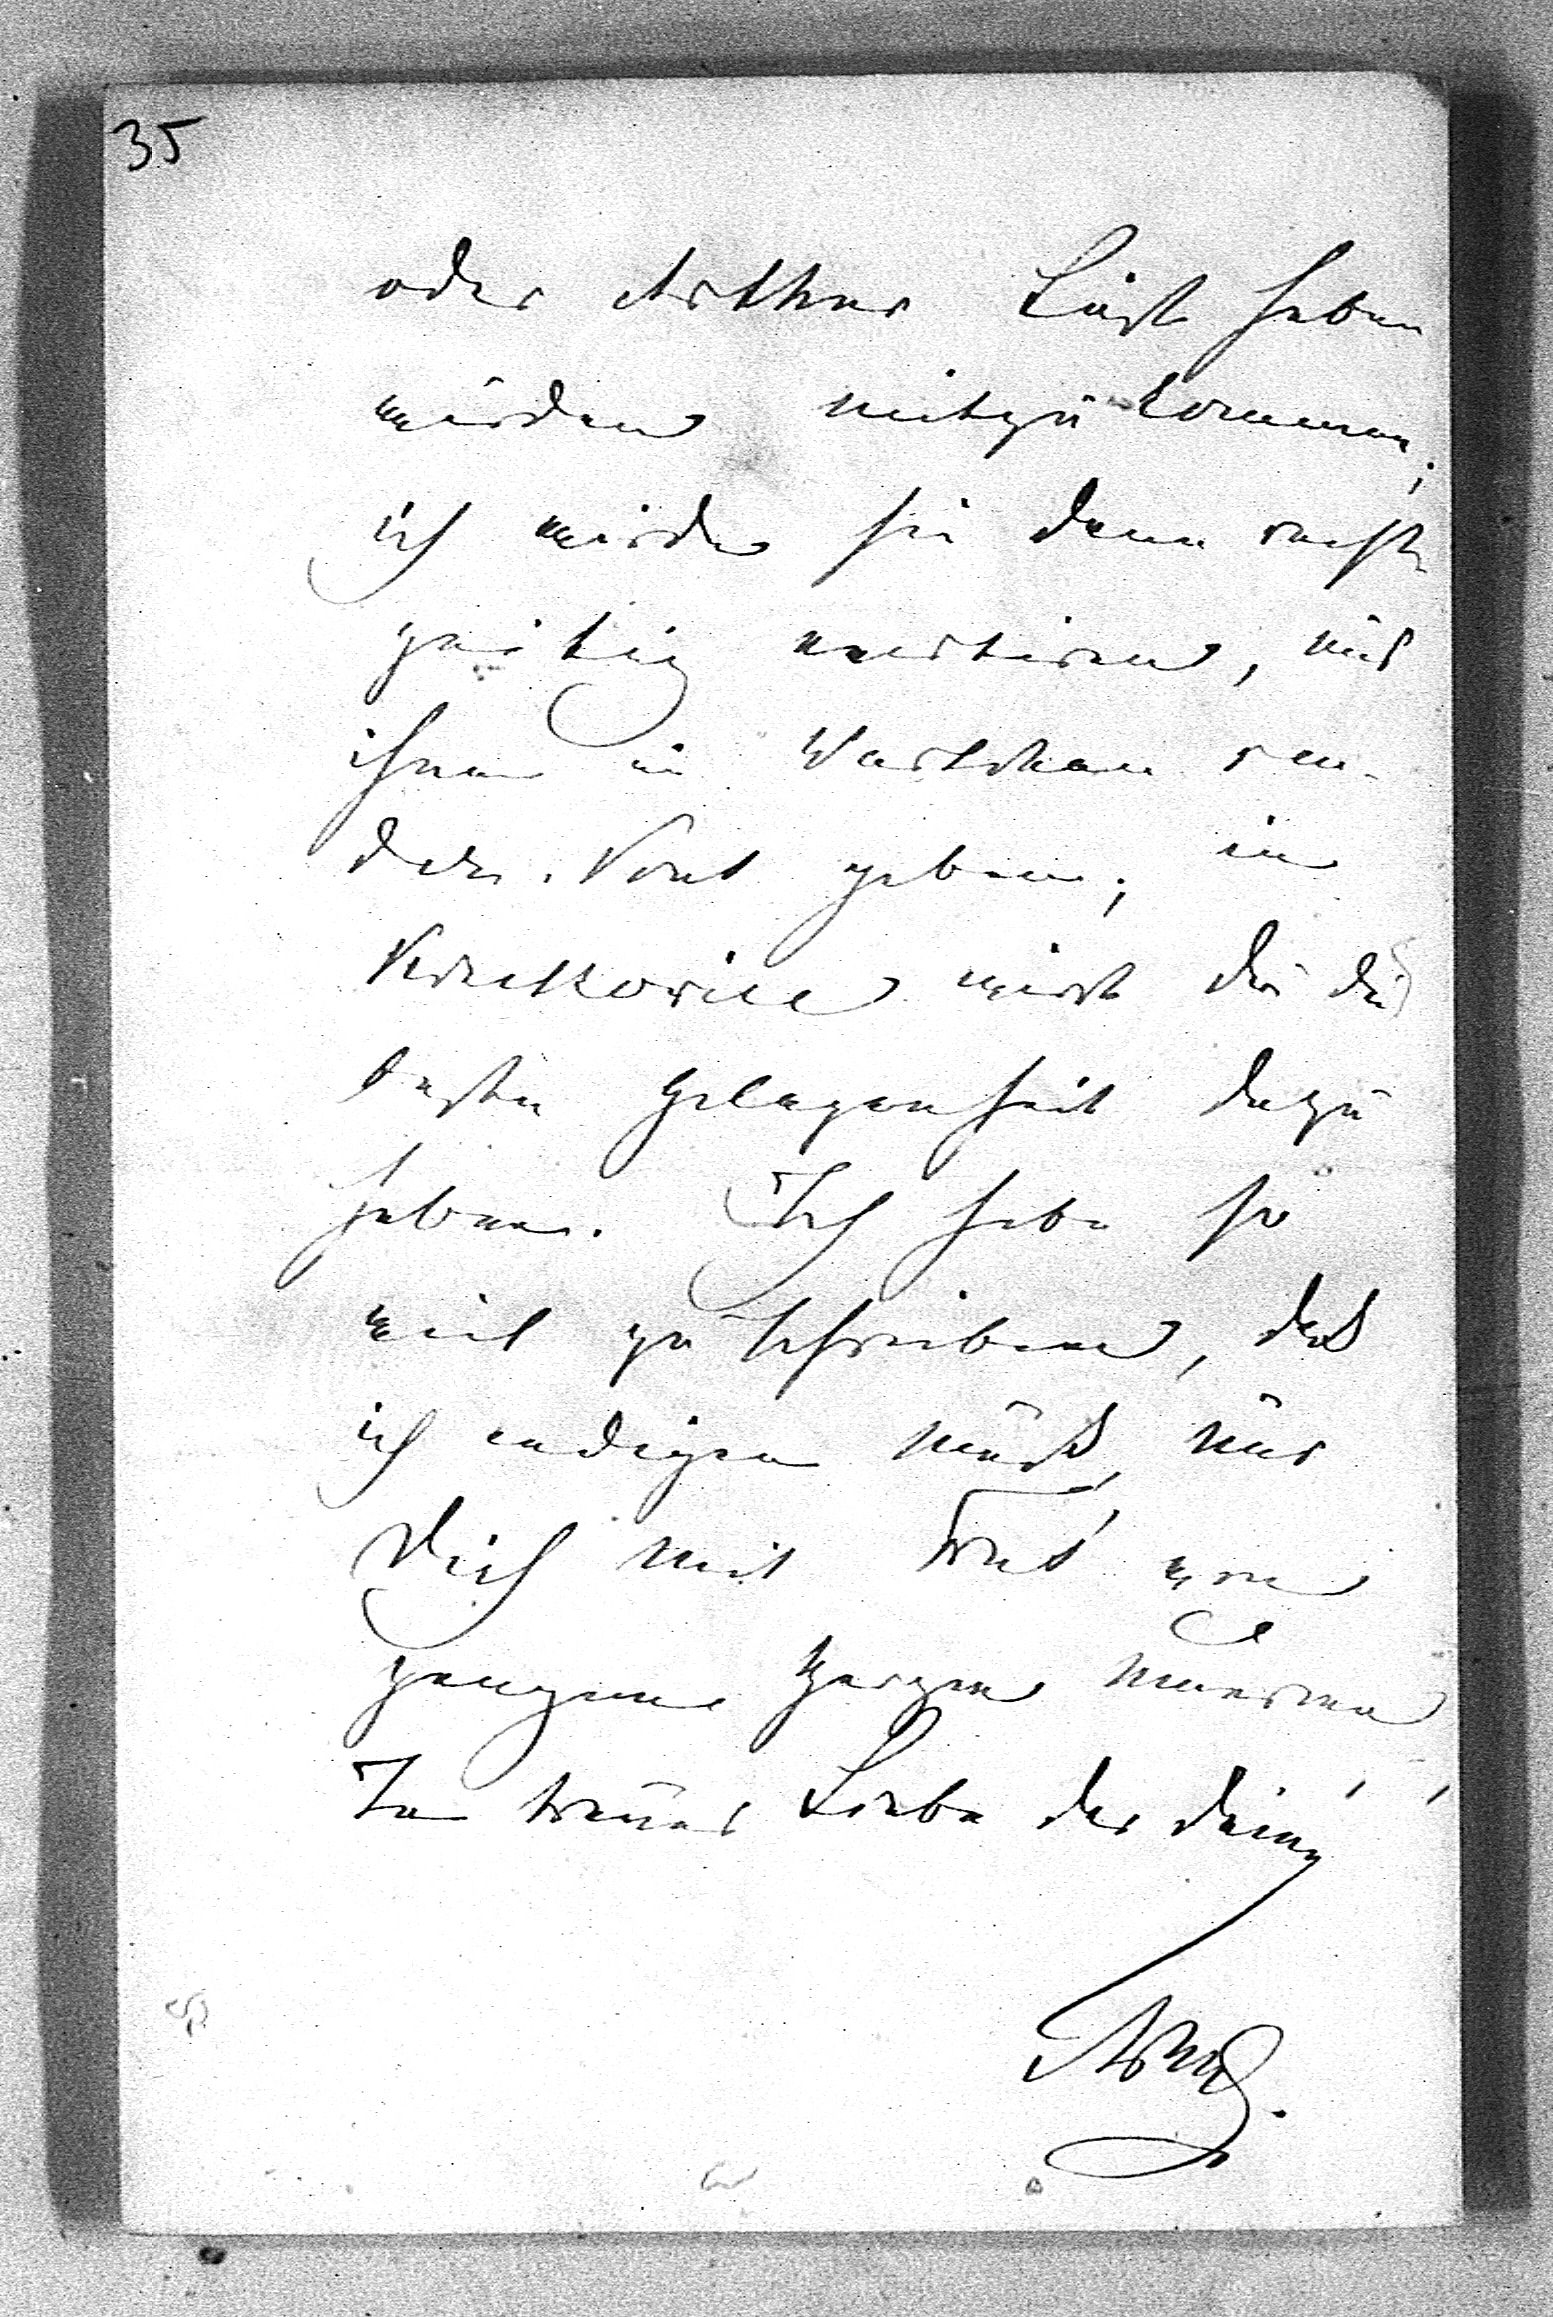 35
oder Arthur Lust haben
würden mitzukommen;
ich würde sie dann recht-
zeitig avertiren, mir
ihnen in Warschau ren-
dez-vous geben; in
wirst du die
beste Gelegenheit dazu
haben. Ich habe so
viel zu schreiben, daß
ich endigen muß, nur
Dich mit von
ganzem Herzen
In treuer Liebe der deine